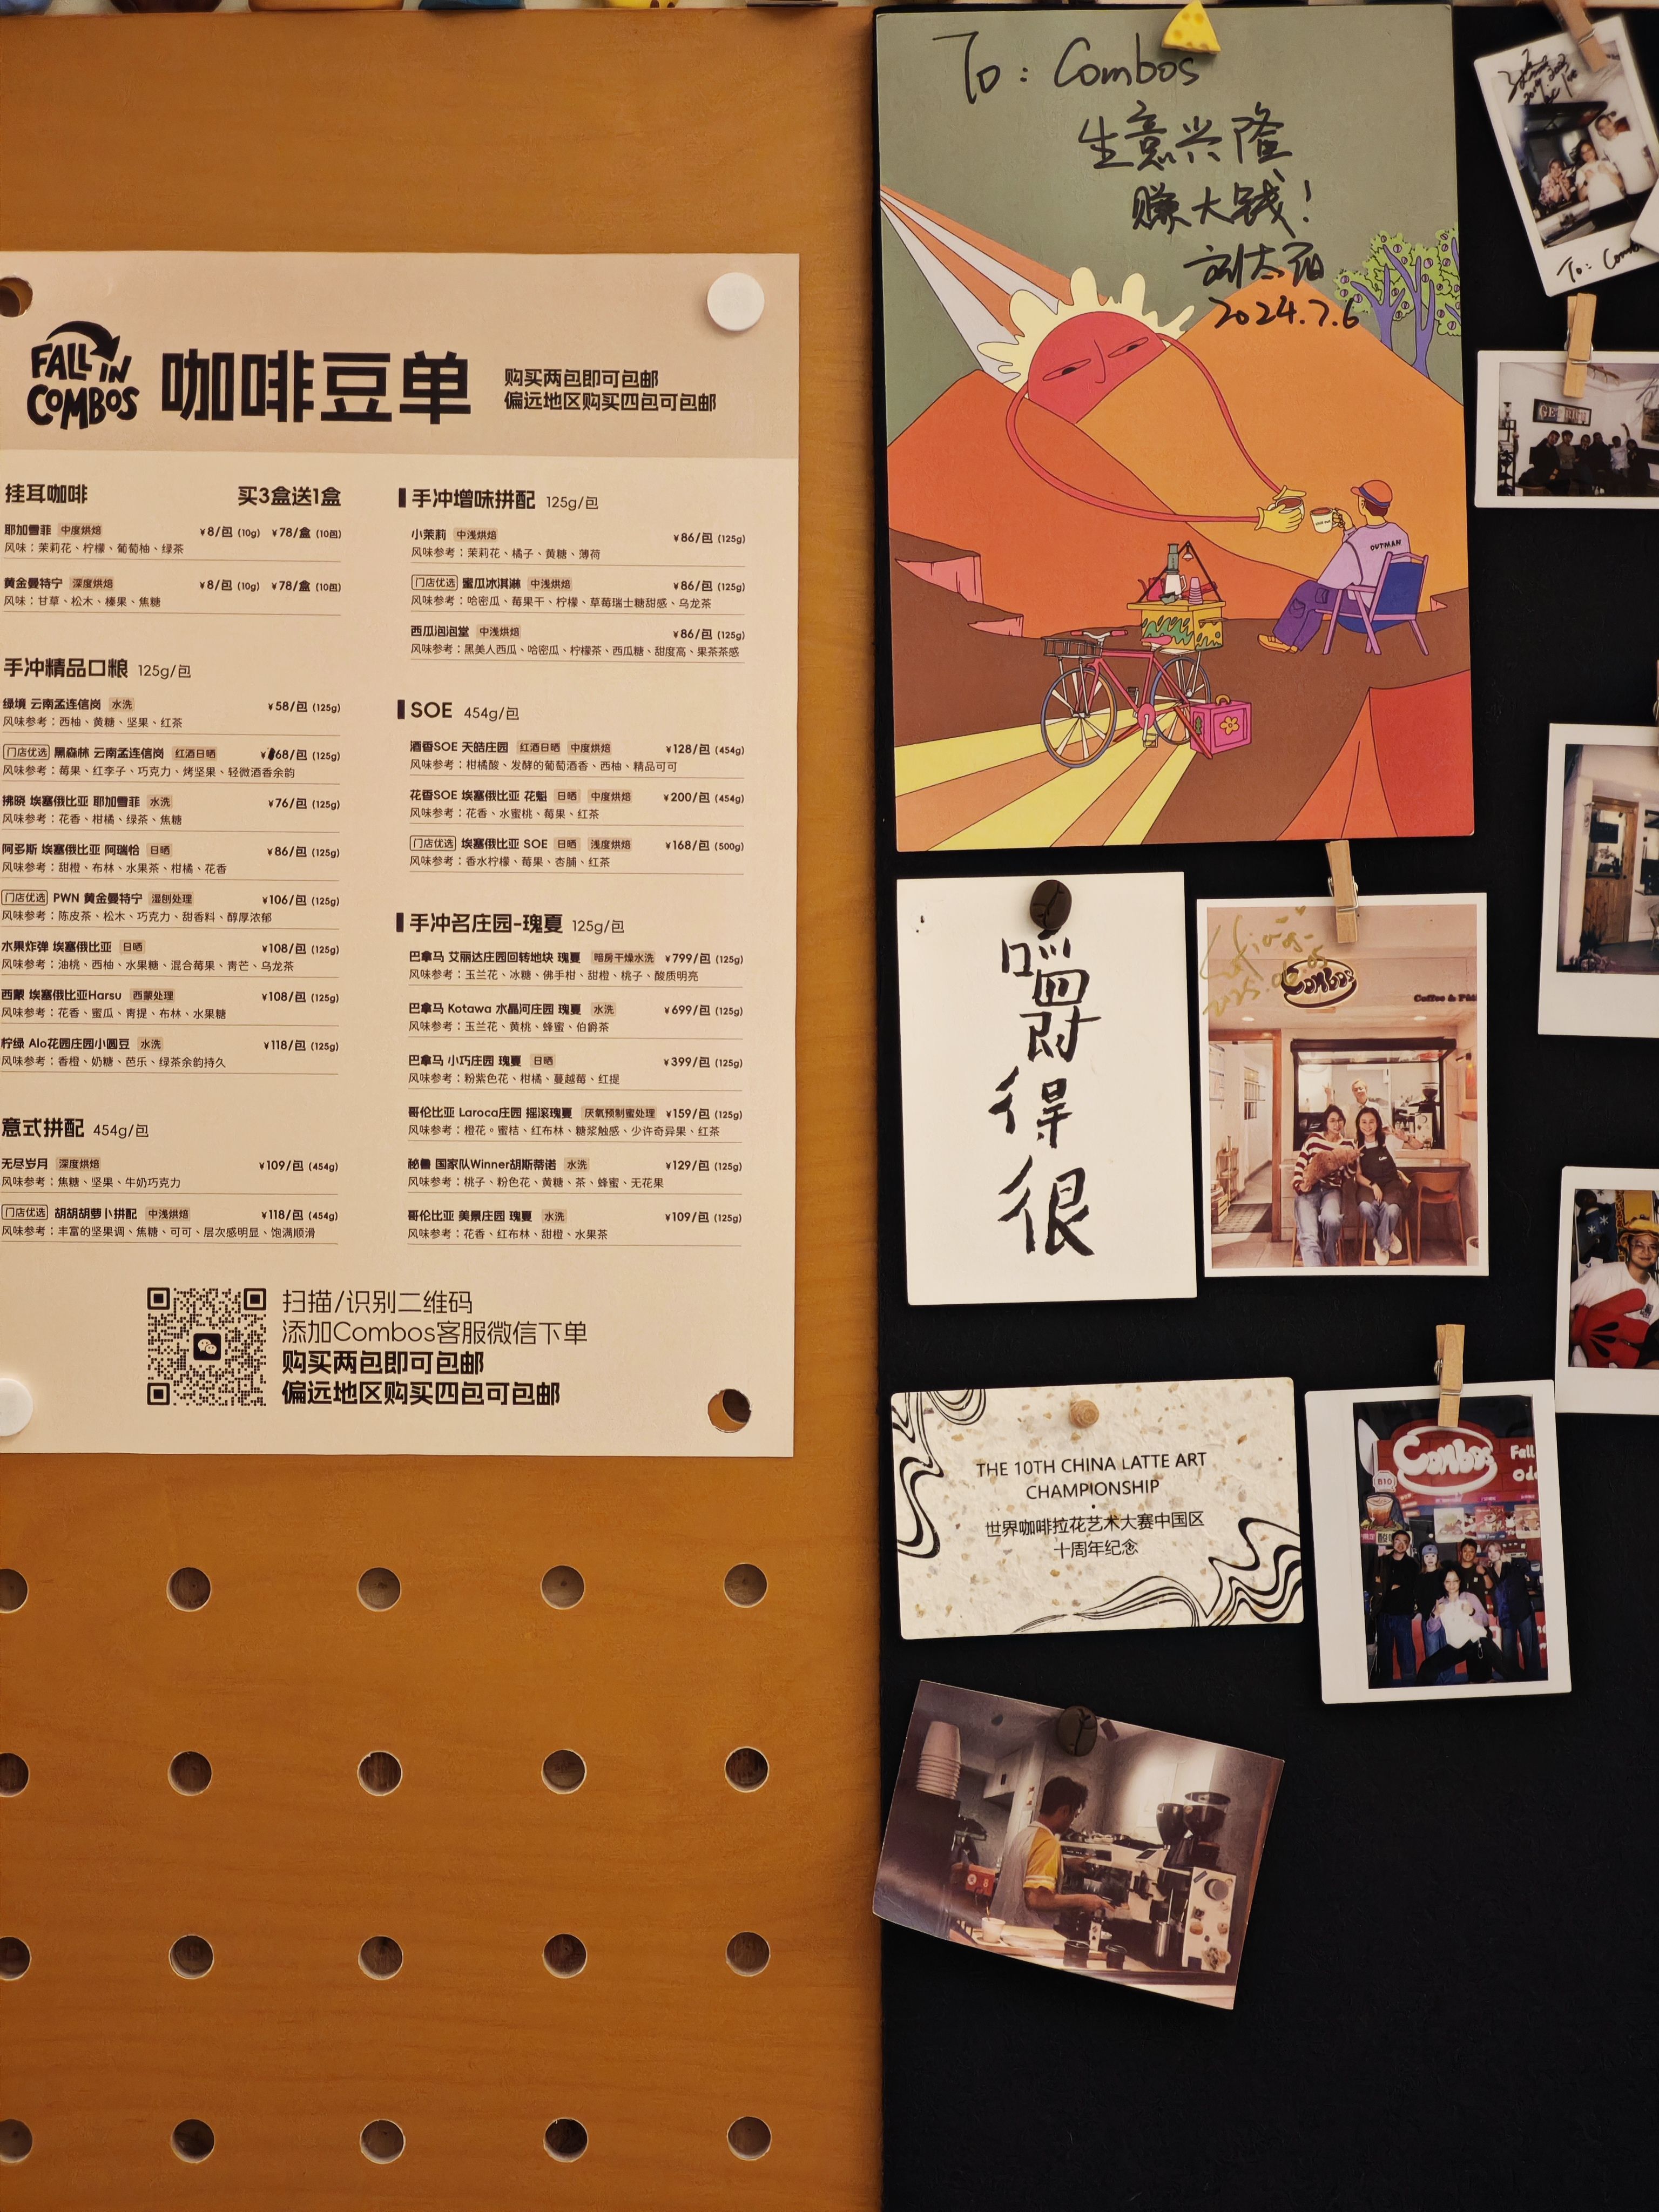 FALL IN
COMBOS
咖啡豆单
购买两包即可包邮
偏远地区购买四包可包邮
挂耳咖啡 买3盒送1盒
耶加雪菲 中度烘焙 ¥8/包 (10g) ¥78/盒 (10包)
风味：茉莉花、柠檬、葡萄柚、绿茶
黄金曼特宁 深度烘焙 ¥8/包 (10g) ¥78/盒 (10包)
风味：甘草、松木、榛果、焦糖
手冲精品口粮 125g/包
绿境 云南孟连信岗 水洗 ¥58/包 (125g)
风味参考：西柚、黄糖、坚果、红茶
门店优选 黑森林 云南孟连信岗 红酒日晒 ¥68/包 (125g)
风味参考：莓果、红李子、巧克力、烤坚果、轻微酒香余韵
拂晓 埃塞俄比亚 耶加雪菲 水洗 ¥76/包 (125g)
风味参考：花香、柑橘、绿茶、焦糖
阿多斯 埃塞俄比亚 阿瑞恰 日晒 ¥86/包 (125g)
风味参考：甜橙、布林、水果茶、柑橘、花香
门店优选 PWN 黄金曼特宁 湿刨处理 ¥106/包 (125g)
风味参考：陈皮茶、松木、巧克力、甜香料、醇厚浓郁
水果炸弹 埃塞俄比亚 日晒 ¥108/包 (125g)
风味参考：油桃、西柚、水果糖、混合莓果、青芒、乌龙茶
西蒙 埃塞俄比亚Harsu 西蒙处理 ¥108/包 (125g)
风味参考：花香、蜜瓜、青提、布林、水果糖
柠绿 Alo花园庄园小圆豆 水洗 ¥118/包 (125g)
风味参考：香橙、奶糖、芭乐、绿茶余韵持久
意式拼配 454g/包
无尽岁月 深度烘焙 ¥109/包 (454g)
风味参考：焦糖、坚果、牛奶巧克力
门店优选 胡胡胡萝卜拼配 中浅烘焙 ¥118/包 (454g)
风味参考：丰富的坚果调、焦糖、可可、层次感明显、饱满顺滑
手冲增味拼配 125g/包
小茉莉 中浅烘焙 ¥86/包 (125g)
风味参考：茉莉花、橘子、黄糖、薄荷
门店优选 蜜瓜冰淇淋 中浅烘焙 ¥86/包 (125g)
风味参考：哈密瓜、莓果干、柠檬、草莓瑞士糖甜感、乌龙茶
西瓜泡泡堂 中浅烘焙 ¥86/包 (125g)
风味参考：黑美人西瓜、哈密瓜、柠檬茶、西瓜糖、甜度高、果茶茶感
SOE 454g/包
酒香SOE 天皓庄园 红酒日晒 中度烘焙 ¥128/包 (454g)
风味参考：柑橘酸、发酵的葡萄酒香、西柚、精品可可
花香SOE 埃塞俄比亚 花魁 日晒 中度烘焙 ¥200/包 (454g)
风味参考：花香、水蜜桃、莓果、红茶
门店优选 埃塞俄比亚 SOE 日晒 浅度烘焙 ¥168/包 (500g)
风味参考：香水柠檬、莓果、杏脯、红茶
手冲名庄园-瑰夏 125g/包
巴拿马 艾丽达庄园回转地块 瑰夏 暗房干燥水洗 ¥799/包 (125g)
风味参考：玉兰花、冰糖、佛手柑、甜橙、桃子、酸质明亮
巴拿马 Kotawa 水晶河庄园 瑰夏 水洗 ¥699/包 (125g)
风味参考：玉兰花、黄桃、蜂蜜、伯爵茶
巴拿马 小巧庄园 瑰夏 日晒 ¥399/包 (125g)
风味参考：粉紫色花、柑橘、蔓越莓、红提
哥伦比亚 Laroca庄园 摇滚瑰夏 厌氧预制蜜处理 ¥159/包 (125g)
风味参考：橙花。蜜桔、红布林、糖浆触感、少许奇异果、红茶
秘鲁 国家队Winner胡斯蒂诺 水洗 ¥129/包 (125g)
风味参考：桃子、粉色花、黄糖、茶、蜂蜜、无花果
哥伦比亚 美景庄园 瑰夏 水洗 ¥109/包 (125g)
风味参考：花香、红布林、甜橙、水果茶
扫描/识别二维码
添加Combos客服微信下单
购买两包即可包邮
偏远地区购买四包可包邮
To: Combos
生意兴隆
赚大钱！
2024.7.6
OUTMAN
嚼得很
Combos
THE 10TH CHINA LATTE ART
CHAMPIONSHIP
世界咖啡拉花艺术大赛中国区
十周年纪念
Combos
Fall
B10
To: